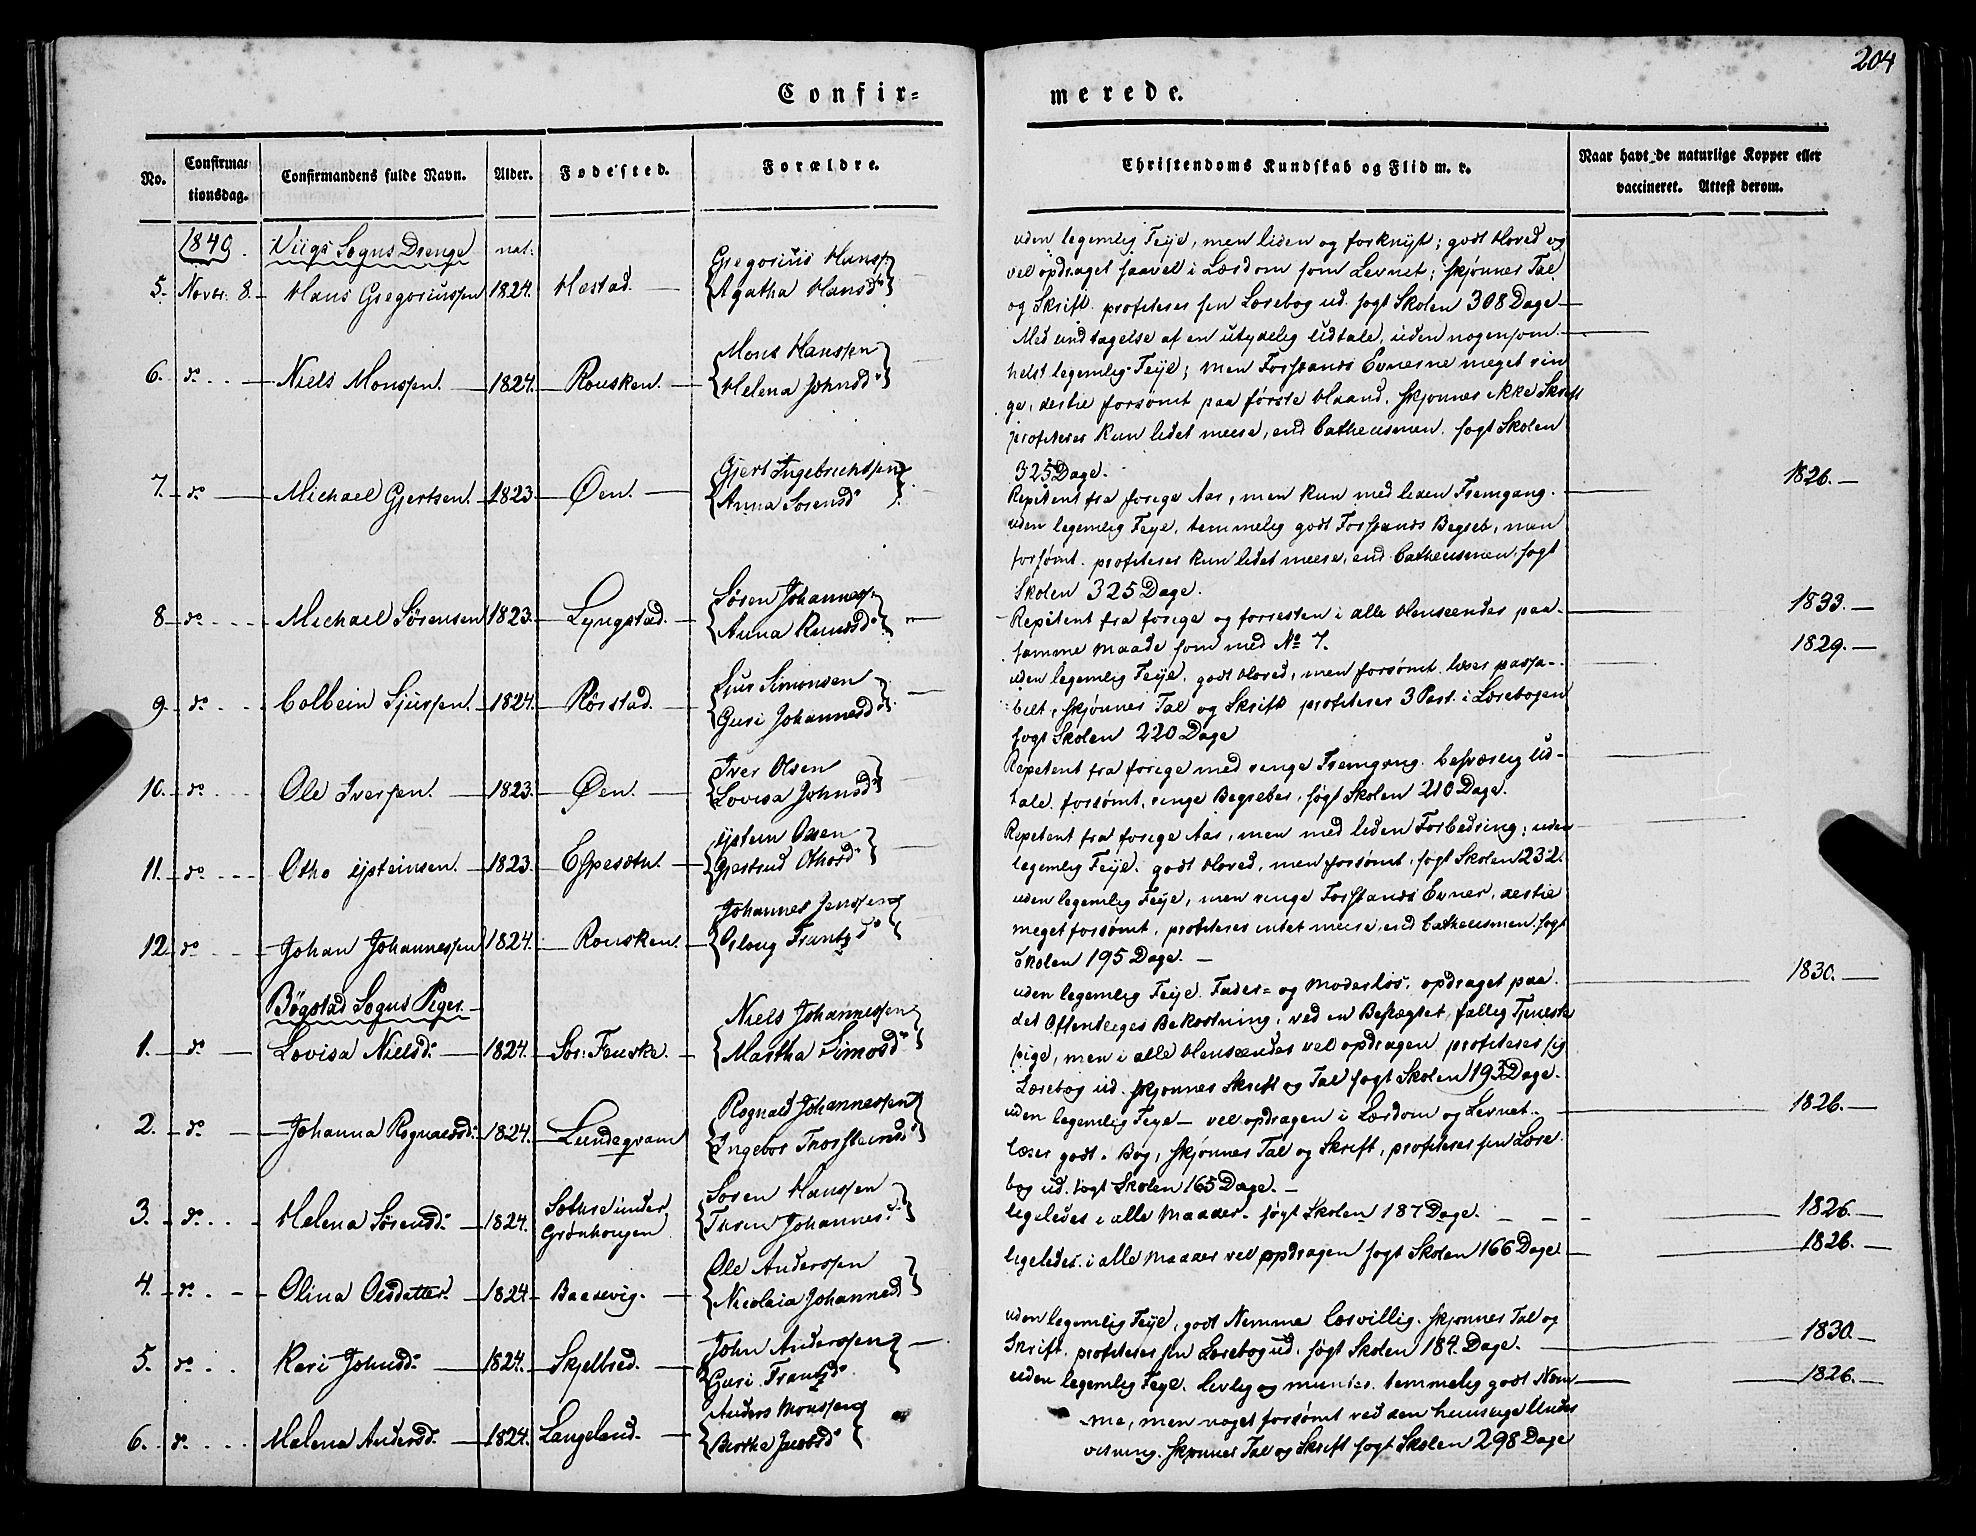 204
Confir=
merede.
No.
Confirma=
tionsdag.
Confirmandens fulde Navn.
Alder.
Fødested.
Forældre.
Christendoms Kundskab og Flid m. v.
Naar havt de naturlige Kopper eller
vaccineret. Attest derom.
1840. Viigs Sogns Drenge nat:
5. Novbr: 8. Hans Gregoriussen 1824. Hæstad.
Gregorius Hanss:
Agatha Hansd:
uden legemlig Feijl, men liden og forknyt; godt Hoved og
vel opdraget saavel i Lærdom som Levnet; skjønner Tal
og Skrift. profiterer sin Lærebog ud. søgt Skolen 308 Dage
6. do Niels Monssen. 1824. Rousken.
Mons Hanssen
Helena Johnsd:
Med undtagelse af en utydelig Udtale, uden nogensom-
helst legemlig Feijl; men Forstands Evnerne meget rin
ge, destie forsømt paa første Haand. skjønner ikke Skrift
profiterer kun lidet meere, end Cathecismen. søgt Skolen
325 Dage.
7. do Michael Gjertsen. 1823. Øen.
Gjert Ingebrichtsen
Anna Sorensd:
Repitent fra forige Aar, men kun med liden Fremgang.
uden legemlig Feijl, temmelig godt Forstands Begreb, men
forsømt. profiterer kun lidet meere, end Cathecismen, søgt
Skolen 325 Dage.
1826.
8. do Michael Sørensen 1823. Lyngstad.
Søren Johanness:
Anna Knudsd:
Repitent fra forige og forresten i alle Henseender paa
samme Maade som med No 7.
1833.
1829.
9. do Colbein Sjurssen. 1824. Rørstad.
Sjur Simonsen
Guri Johannesd:
uden legemlig Feijl, godt Hoved, men forsømt. læser passa-
belt, skjønner Tal og Skrift profiterer 3 Part. i Lærebogen
søgt Skolen 220 Dage
10. do Ole Iverssen. 1823. Øen.
Iver Olsen
Lovisa Johnsd:
Repetent fra forige med ringe Fremgang. besværlig Ud-
tale. forsømt, ringe Begreber, søgt Skolen 210 Dage.
11. do Otho Ijsteinsen. 1823. Espesætn.
Ijstein Olsen
Gjertrud Othosd:
Repetent fra forige Aar, men med liden Forbedring; uden
legemlig Feijl. godt Hoved, men forsømt, søgt Skolen 232.
12. do Johan Johannessen 1824. Rousken.
Johannes Jenssen
Oslaug Frantzd:
uden legemlig Feijl, men ringe Forstands Evner, destie
meget forsømt, profiterer intet meere, end Cathecismen. søgt
Skolen 195 Dage.
Bøgstad Sogns Piger.
1. do Lovisa Nielsd: 1824. Sør: Fenske.
Niels Johannessen
Martha Simosd:
uden legemlig Feijl. Fader= og Moderløs, opdraget paa
det Offentliges Bekostning, ved en Beslægtet, fattig Tjeneste
pige, men i alle Henseender vel opdragen profiterer sig
Lærebog ud. skjønner Skrift og Tal søgt Skolen 193 Dage.
1830.
2. do Johanna Rognaldsd: 1824. Lundeqvam
Rognald Johannessen
Ingebor Thorsteinsd:
uden legemlig Feijl — vel opdragen i Lærdom og Levnet.
læser godt. Bog, skjønner Tal og Skrift, profiterer sin Lære
bog ud. søgt Skolen 165 Dage.
1826.
3. do Helena Sørensd: 1824. Sætre under
Grønhougen
Soren Hanssen
Thoren Johannesd:
ligeledes i alle Maader. søgt Skolen 187 Dage.
1826.
4. do Olina Olsdatter. 1824. Baasevig.
Ole Anderssen
Nicolaia Johannesd
ligeledes. i alle Maader vel opdragen søgt Skolen 166 Dage
1826.
5. do Kari Johnsd: 1824. Skjelbred.
John Anderssen
Guri Frantzd:
uden legemlig Feijl, godt Nemme Lærvillig. skjønner Tal og
Skrift. profiterer sin Lærebog ud. søgt Skolen 184. Dage.
1830
6. do Malena Andersd. 1824. Langeland.
Anders Monssen
Berthe Jacobsd:
uden legemlig Feijl. livlig og munter. temmelig godt Nem
me, men noget forsømt ved den huuslige Under
viisning. skjønner Tal og Skrift søgt Skolen 298 Dage
1826.